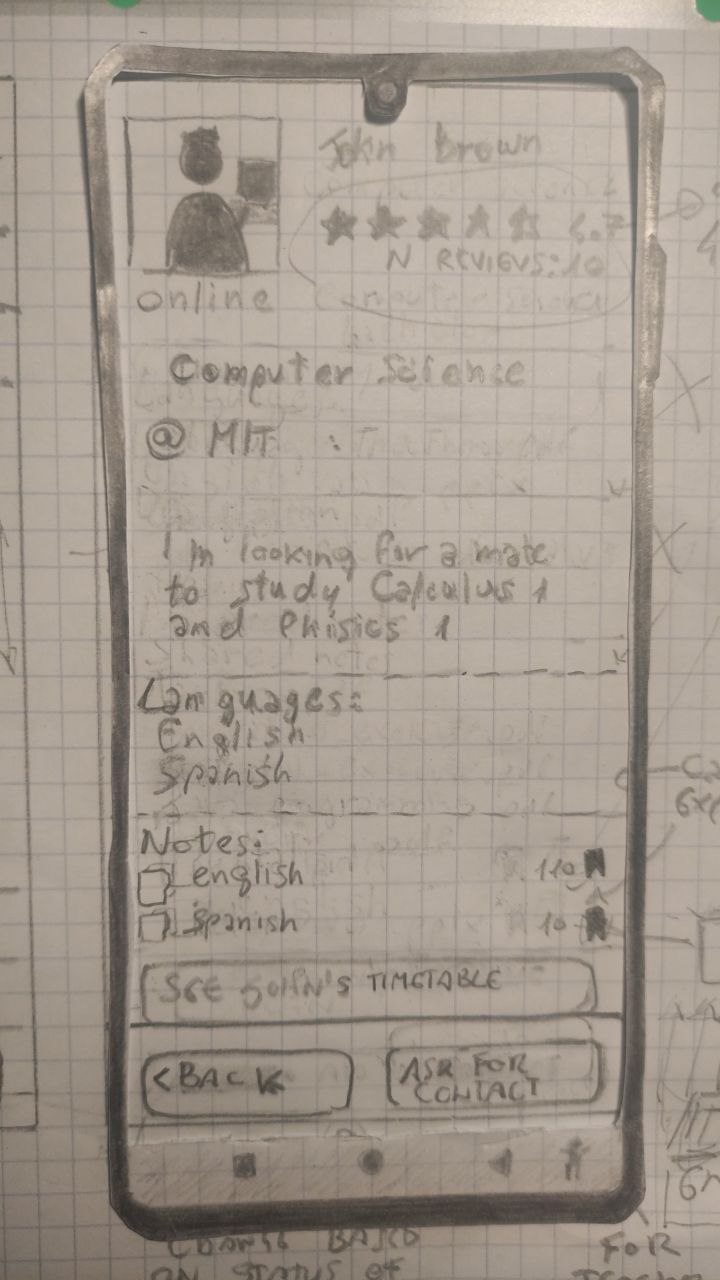 John Brown
N REVIEVS: 10
online
Computer Science
@ MIT :
I'm looking for a mate
to study Calculus 1
and Phisics 1
Languages:
English
Spanish
Notes:
english 110
spanish 10
SEE JOHN'S TIMETABLE
< BACK
ASK FOR
CONTACT
CHANGE BASED
ON STATUS OF
FOR